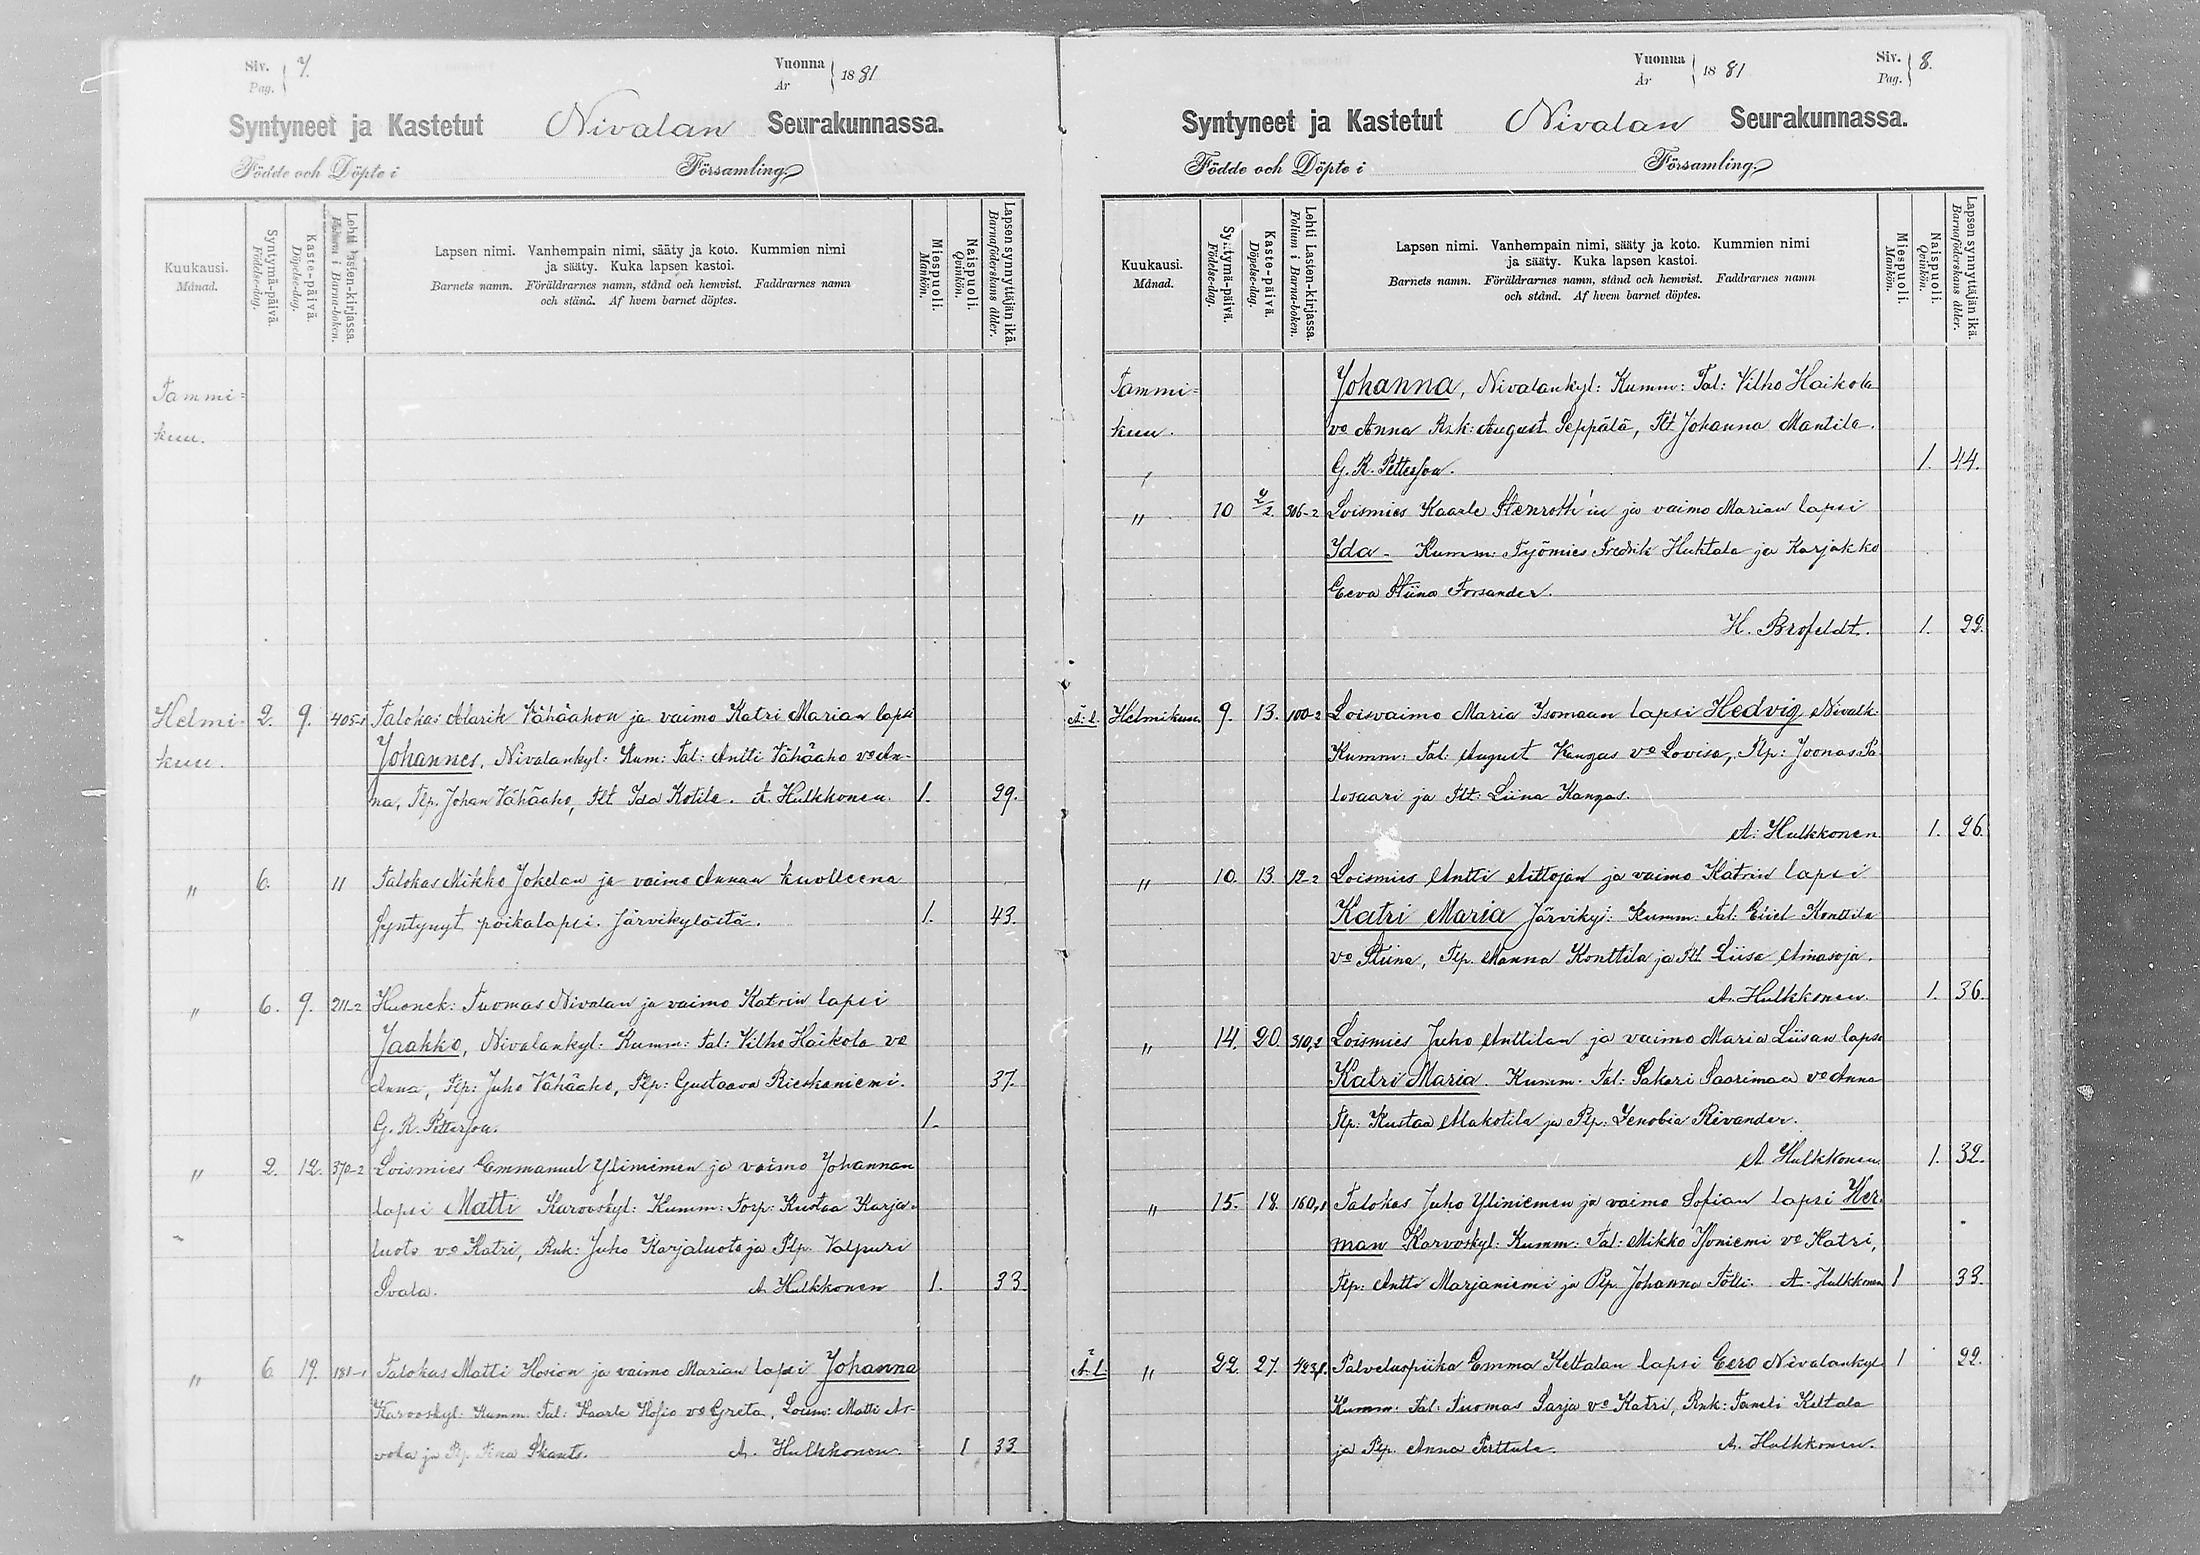 Siv. 7. Vuonna 1881
Pag. År
Syntyneet ja Kastetut Nivalan Seurakunnassa.
Födde och Döpte i Församling
Kuukausi. Månad.
Syntymä-päivä. Födelse-dag.
Kaste-päivä. Döpelse-dag.
Lehti Lasten-kirjassa. Folium i Barna-boken.
Lapsen nimi. Vanhempain nimi, sääty ja koto. Kummien nimi
ja sääty. Kuka lapsen kastoi.
Barnets namn. Föräldrarnes namn, stånd och hemvist. Faddrarnes namn
och stånd. Af hvem barnet döptes.
Miespuoli. Mankön.
Naispuoli. Qvinkön.
Lapsensynnyttäjän ikä. Barnaföderskans ålder.
Tammi=
kuu.
Helmi- 2. 9. 405-1 Talokas Alarik Vähäahon ja vaimo Katri Marian lapsi
kuu. Johannes, Nivalankyl: Kum: Tal: Antti Vähäaho vo An-
na, Tlp. Johan Vähäaho, Tlt Ida Kotila. A. Hulkkonen. 1. 29.
" 6. " Talokas Mikko Jokelan ja vaimo Annan kuolleena
syntynyt poikalapsi. Järvikylästä. 1. 43.
" 6. 9. 211-2 Huonek: Tuomas Nivalan ja vaimo Katrin lapsi
Jaakko, Nivalankyl: Kumm: Tal: Vilho Haikola vo
Anna, Tlp: Juho Vähäaho, Plp: Gustaava Rieskaniemi. 37.
G. R. Petterson. 1.
" 2. 12. 370-2 Loismies Emmanuel Yliniemen ja vaimo Johannan
lapsi Matti Karvoskyl: Kumm: Torp: Kustaa Karja-
luoto vo Katri, Rnk: Juho Karjaluoto ja Plp. Valpuri
Svala. A. Hulkkonen 1. 33.
" 6. 19. 181-1 Talokas Matti Hosion ja vaimo Marian lapsi Johanna
Karvoskyl: Kumm. Tal: Kaarle Hosio vo Greta, Loism: Matti Ar-
vola ja Plp. A. Hulkkonen. 1 33
Vuonna 1881 Siv. 8.
År Pag.
Syntyneet ja Kastetut Nivalan Seurakunnassa.
Födde och Döpte i Församling
Kuukausi. Månad.
Syntymä-päivä. Födelse-dag.
Kaste-päivä. Döpelse-dag.
Lehti Lasten-kirjassa. Folium i Barna-boken.
Lapsen nimi. Vanhempain nimi, sääty ja koto. Kummien nimi
ja sääty. Kuka lapsen kastoi.
Barnets namn. Föräldrarnes namn, stånd och hemvist. Faddrarnes namn
och stånd. Af hvem barnet döptes.
Miespuoli. Mankön.
Naispuoli. Qvinkön.
Lapsen synnyttäjän ikä. Barnaföderskans ålder.
Tammi= Johanna, Nivalankyl: Kumm: Tal: Vilho Haikola
kuu. vo Anna Rnk: August Seppälä, Tlt Johanna Mantila.
G. R. Petterson. 1. 44.
" 10 9/2. 306-2 Loismies Kaarle Stenroth'in ja vaimo Marian lapsi
Ida - Kumm: Työmies Fredrik Huhtala ja Karjakko
Eeva Stiina Forsander.
H. Brofeldt. 1. 29.
Ä. l. Helmikuu. 9. 13. 100-2 Loisvaimo Maria Isomaan lapsi Hedvig Nivalk:
Kumm: Tal: August Kangas vo Lovisa, Tlp: Joonas Pa-
losaari ja Tlt: Liina Kangas.
A. Hulkkonen. 1. 26.
" 10. 13. 12-2 Loismies Antti Aittojan ja vaimo Katrin lapsi
Katri Maria Järvikyl: Kumm: Tal: Konttila
vo Stiina, Tlp. Manna Konttila ja Tlt Liisa Ainasoja.
A. Hulkkonen. 1. 36.
" 14. 20. 310,2 Loismies Juho Anttilan ja vaimo Maria Liisan lapsi
Katri Maria. Kumm. Tal: Sakari Saarimaa vo Anna
Tlp: Kustaa Makotila ja Plp: Zenobia Rivander.
A. Hulkkonen. 1. 32.
" 15. 18. 160,1 Talokas Juho Yliniemen ja vaimo Sofian lapsi Her-
man Karvoskyl: Kumm: Tal: Mikko Isoniemi vo Katri,
Tlp: Antti Marjaniemi ja Plp. Johanna Tölli. A. Hulkkonen 1 33.
Ä. l. " 22. 27. 423,1. Palveluspiika Emma Keltalan lapsi Eero Nivalankyl 1 22.
Kumm: Tal: Tuomas Sarja vo Katri, Rnk: Taneli Keltala
ja Plp. Anna Perttula. A. Hulkkonen.